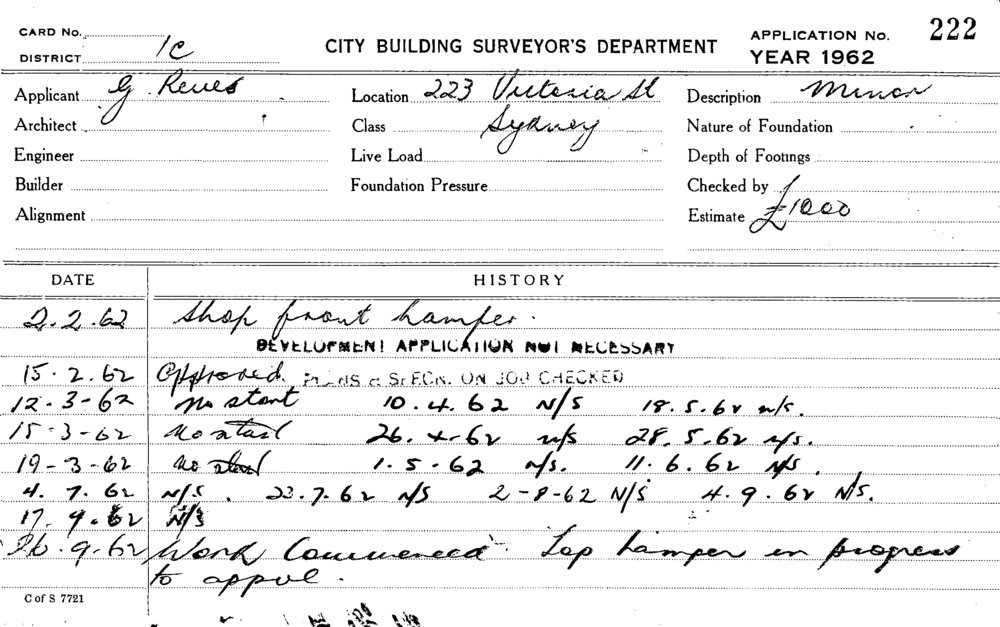 CARD No.
DISTRICT 1C
CITY BUILDING SURVEYOR'S DEPARTMENT
APPLICATION No. 222
YEAR 1962
Applicant G. Reves Location 223 Victoria St Description Minor
Architect Class Sydney Nature of Foundation
Engineer Live Load Depth of Footings
Builder Foundation Pressure Checked by
Alignment Estimate £1000
DATE HISTORY
2.2.62 Shop front hamper.
DEVELOPMENT APPLICATION NOT NECESSARY
15.2.62 Approved. PLANS & SPECN. ON JOB CHECKED
12-3-62 No start 10.4.62 N/S 18.5.62 n/s.
15-3-62 No start 26.4-62 n/s 28.5.62 n/s.
19-3-62 No start 1.5.62 n/s. 11.6.62 N/S.
4.7.62 N/S. 23.7.62 N/S 2-8-62 N/S 4.9.62 N/S.
17.9.62 N/S
26.9.62 Work Commenced. Top hamper in progress
to appvl.
C of S 7721